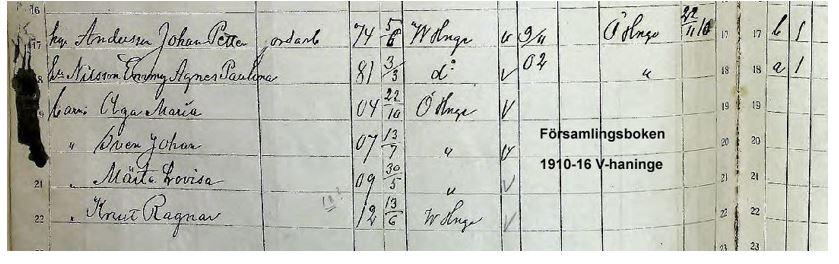 16
17 Andersson Johan Petter jordarb 74 5/6 W Hnge v 9/11 Ö Hnge 22/11 10 17 17 b 1
18 h Nilsson Emmy Agnes Paulina 81 3/3 d:o v 02 " 18 18 a 1
barn: Olga Maria 04 22/10 Ö Hnge v 19 19
" Sven Johan 07 13/7 " v 20 20
21 " Märta Lovisa 09 30/5 " v 21 21
22 " Knut Ragnar 12 13/6 W Hnge v 22 22
23 23
Församlingsboken
1910-16 V-haninge